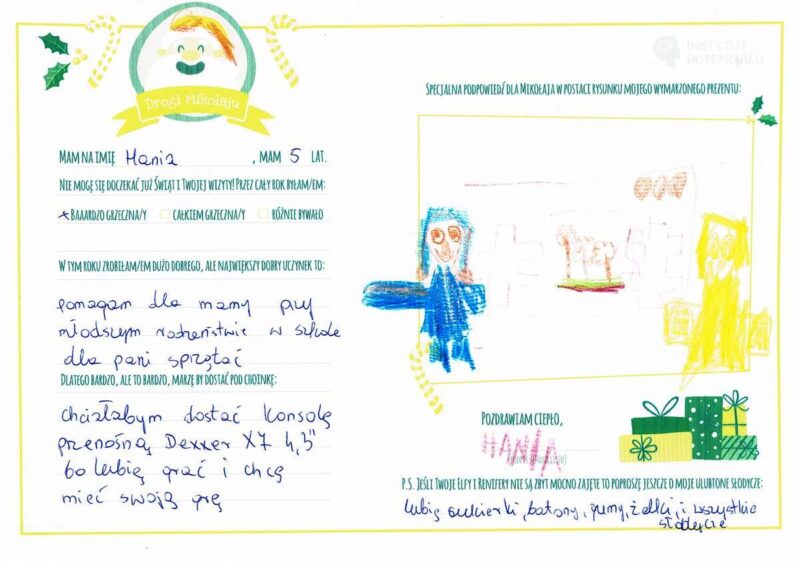 Drogi Mikołaju
INSTYTUT
POTENCJAŁU
MAM NA IMIĘ Hania , MAM 5 LAT.
NIE MOGĘ SIĘ DOCZEKAĆ JUŻ ŚWIĄT I TWOJEJ WIZYTY! PRZEZ CAŁY ROK BYŁAM/EM:
BAAARDZO GRZECZNA/Y CAŁKIEM GRZECZNA/Y RÓŻNIE BYWAŁO
W TYM ROKU ZROBIŁAM/EM DUŻO DOBREGO, ALE NAJWIĘKSZY DOBRY UCZYNEK TO:
pomagam dla mamy przy
młodszym rodzeństwie w szkole
dla pani sprzątać
DLATEGO BARDZO, ALE TO BARDZO, MARZĘ BY DOSTAĆ POD CHOINKĘ:
chciałabym dostać konsolę
przenośną Dexxer X7 4,3"
bo lubię grać i chcę
mieć swoją grę
SPECJALNA PODPOWIEDŹ DLA MIKOŁAJA W POSTACI RYSUNKU MOJEGO WYMARZONEGO PREZENTU:
POZDRAWIAM CIEPŁO,
HANIA
P.S. JEŚLI TWOJE ELFY I RENIFERY NIE SĄ ZBYT MOCNO ZAJĘTE TO POPROSZĘ JESZCZE O MOJE ULUBIONE SŁODYCZE:
lubię cukierki, batony, gumy, żelki, i wszystkie
słodycze